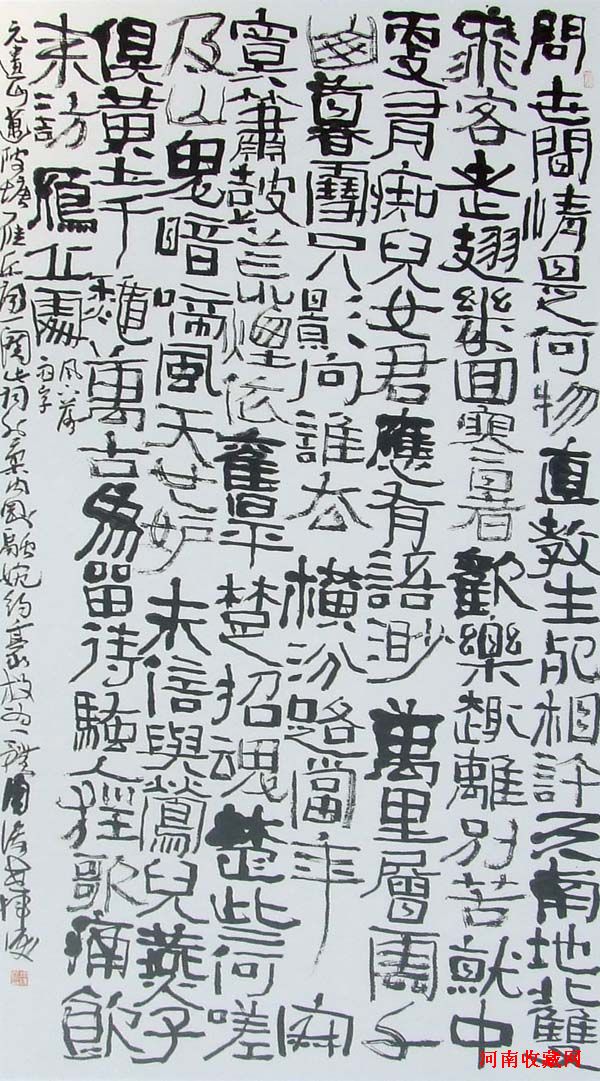 問世間情是何物直教生死相許天南地北雙
飛客老翅幾回寒暑歡樂趣離別苦就中
更有痴兒女君應有語渺萬里層雲千
山暮雪只影向誰去橫汾路當年寂
寞簫鼓荒煙依舊平楚招魂楚些何嗟
及山鬼暗啼風天也妒未信與鶯兒燕子
俱黃土千龝萬古為留待騷人狂歌痛飲
來訪鴈丘處
風下落
雨字
元遺山邁陂塘雁丘詞此詞融婉約豪放為一
河南收藏网